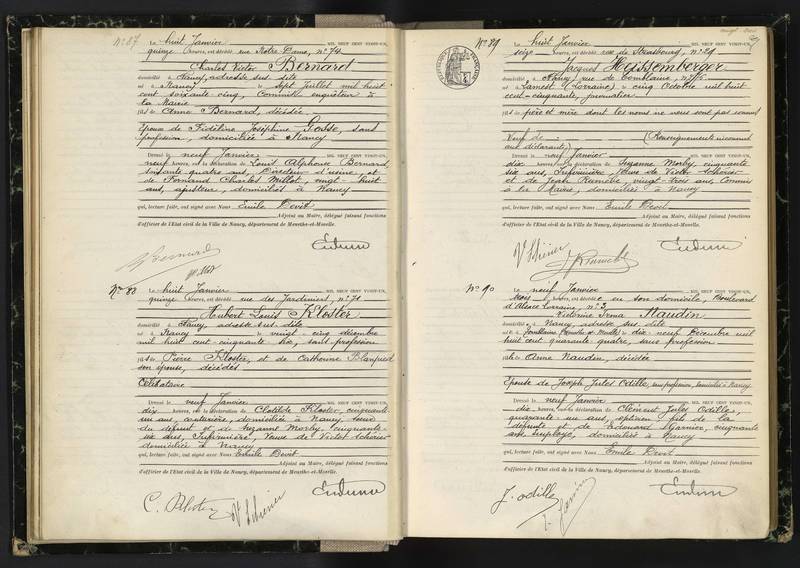 N° 87
Le huit Janvier MIL NEUF CENT VINGT-UN,
quinze heures, est décédé rue Notre-Dame, n° 74
Charles Victor Bernard
domicilié à Nancy, adresse sus-dite
né à Nancy le sept Juillet mil huit
cent soixante-cinq, Commis enquêteur à
la Mairie
fils de Anne Bernard, décédée
Epoux de Fidéline Joséphine Gosse, sans
profession, domiciliée à Nancy
Dressé le neuf Janvier MIL NEUF CENT VINGT-UN,
neuf heures, sur la déclaration de Louis Alphonse Bernard,
soixante quatre ans, Directeur d'usine, et
de Fernand Charles Millot, vingt-huit
ans, ajusteur, domiciliés à Nancy
qui, lecture faite, ont signé avec Nous Emile Devit
Adjoint au Maire, délégué faisant fonctions
d'officier de l'Etat civil de la Ville de Nancy, département de Meurthe-et-Moselle.
Bernard
N° 88
Le huit Janvier MIL NEUF CENT VINGT-UN,
quinze heures, est décédé rue des Jardiniers, n° 71
Hubert Louis Kloster
domicilié à Nancy, adresse sus-dite
né à Nancy le vingt-cinq décembre
mil huit cent cinquante-six, sans profession
fils de Pierre Kloster, et de Catherine
son épouse, décédés
Célibataire
Dressé le neuf Janvier MIL NEUF CENT VINGT-UN,
dix heures, sur la déclaration de Clotilde Kloster, cinquante
un ans, couturière, domiciliée à Nancy, sœur
du défunt et de Suzanne Morby, cinquante-
six ans, Infirmière, Veuve de Victor
domiciliée à Nancy
qui, lecture faite, ont signé avec Nous Emile Devit
Adjoint au Maire, délégué faisant fonctions
d'officier de l'Etat civil de la Ville de Nancy, département de Meurthe-et-Moselle.
C. Kloster
N° 89
Le huit Janvier MIL NEUF CENT VINGT-UN,
seize heures, est décédé rue de Strasbourg, n° 29
Jacques Heissemberger
domicilié à Nancy, rue de Tomblaine,
né à (Lorraine) le cinq Octobre mil huit
cent-cinquante, journalier
fils de père et mère dont les noms ne nous sont pas connus
Veuf de - (Renseignements inconnus
aux déclarants)
Dressé le neuf Janvier MIL NEUF CENT VINGT-UN,
dix heures, sur la déclaration de Suzanne Morby, cinquante
six ans, Infirmière, Veuve de Victor
et de Jean vingt-trois ans, Commis
à la Mairie, domiciliés à Nancy
qui, lecture faite, ont signé avec Nous Emile Devit
Adjoint au Maire, délégué faisant fonctions
d'officier de l'Etat civil de la Ville de Nancy, département de Meurthe-et-Moselle.
N° 90
Le neuf Janvier MIL NEUF CENT VINGT-UN,
trois heures, est décédée en son domicile, Boulevard
d'Alsace-Lorraine, n° 3
Victorine Irma Naudin
domiciliée à Nancy, adresse sus-dite
née à le dix-neuf Décembre mil
huit cent quarante quatre, sans profession
fille de Anne Naudin, décédée
Epouse de Joseph Jules Odille, sans profession, domicilié à Nancy
Dressé le neuf Janvier MIL NEUF CENT VINGT-UN,
dix heures, sur la déclaration de Clément Jules Odille,
quarante-six ans, opticien, fils de la
défunte et de Edouard Garnier, cinquante
ans, employé, domiciliés à Nancy
qui, lecture faite, ont signé avec Nous Emile Devit
Adjoint au Maire, délégué faisant fonctions
d'officier de l'Etat civil de la Ville de Nancy, département de Meurthe-et-Moselle.
J. Odille